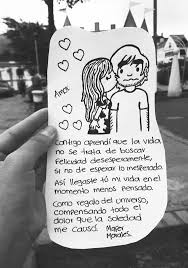 Amor
Contigo aprendí que la vida
no se trata de buscar
Felicidad desesperamente,
si no de esperar lo inesperado.
Así llegaste tú mi vida en el
momento menos pensado.
Como regalo del universo,
compensando todo el
dolor que la soledad
me causó.
Mayer
Morales.